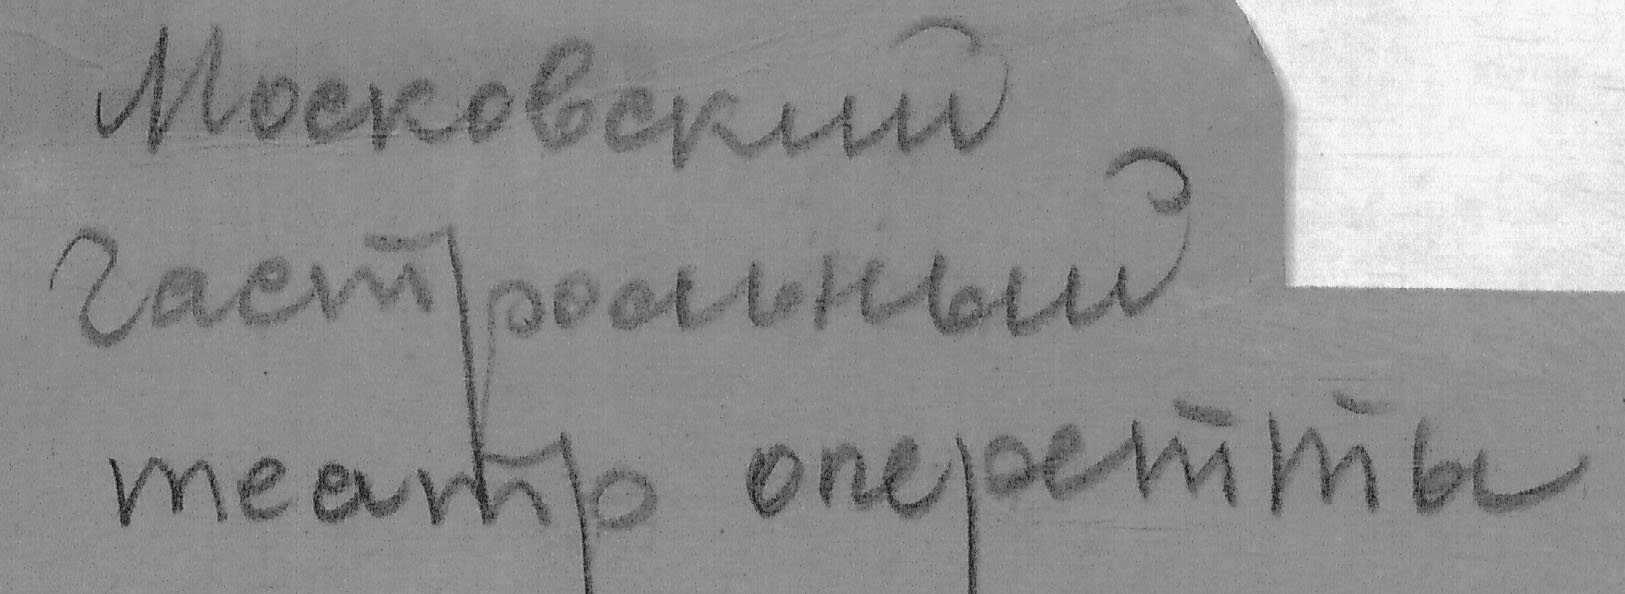 Московский
Гастрольный
театр оперетты